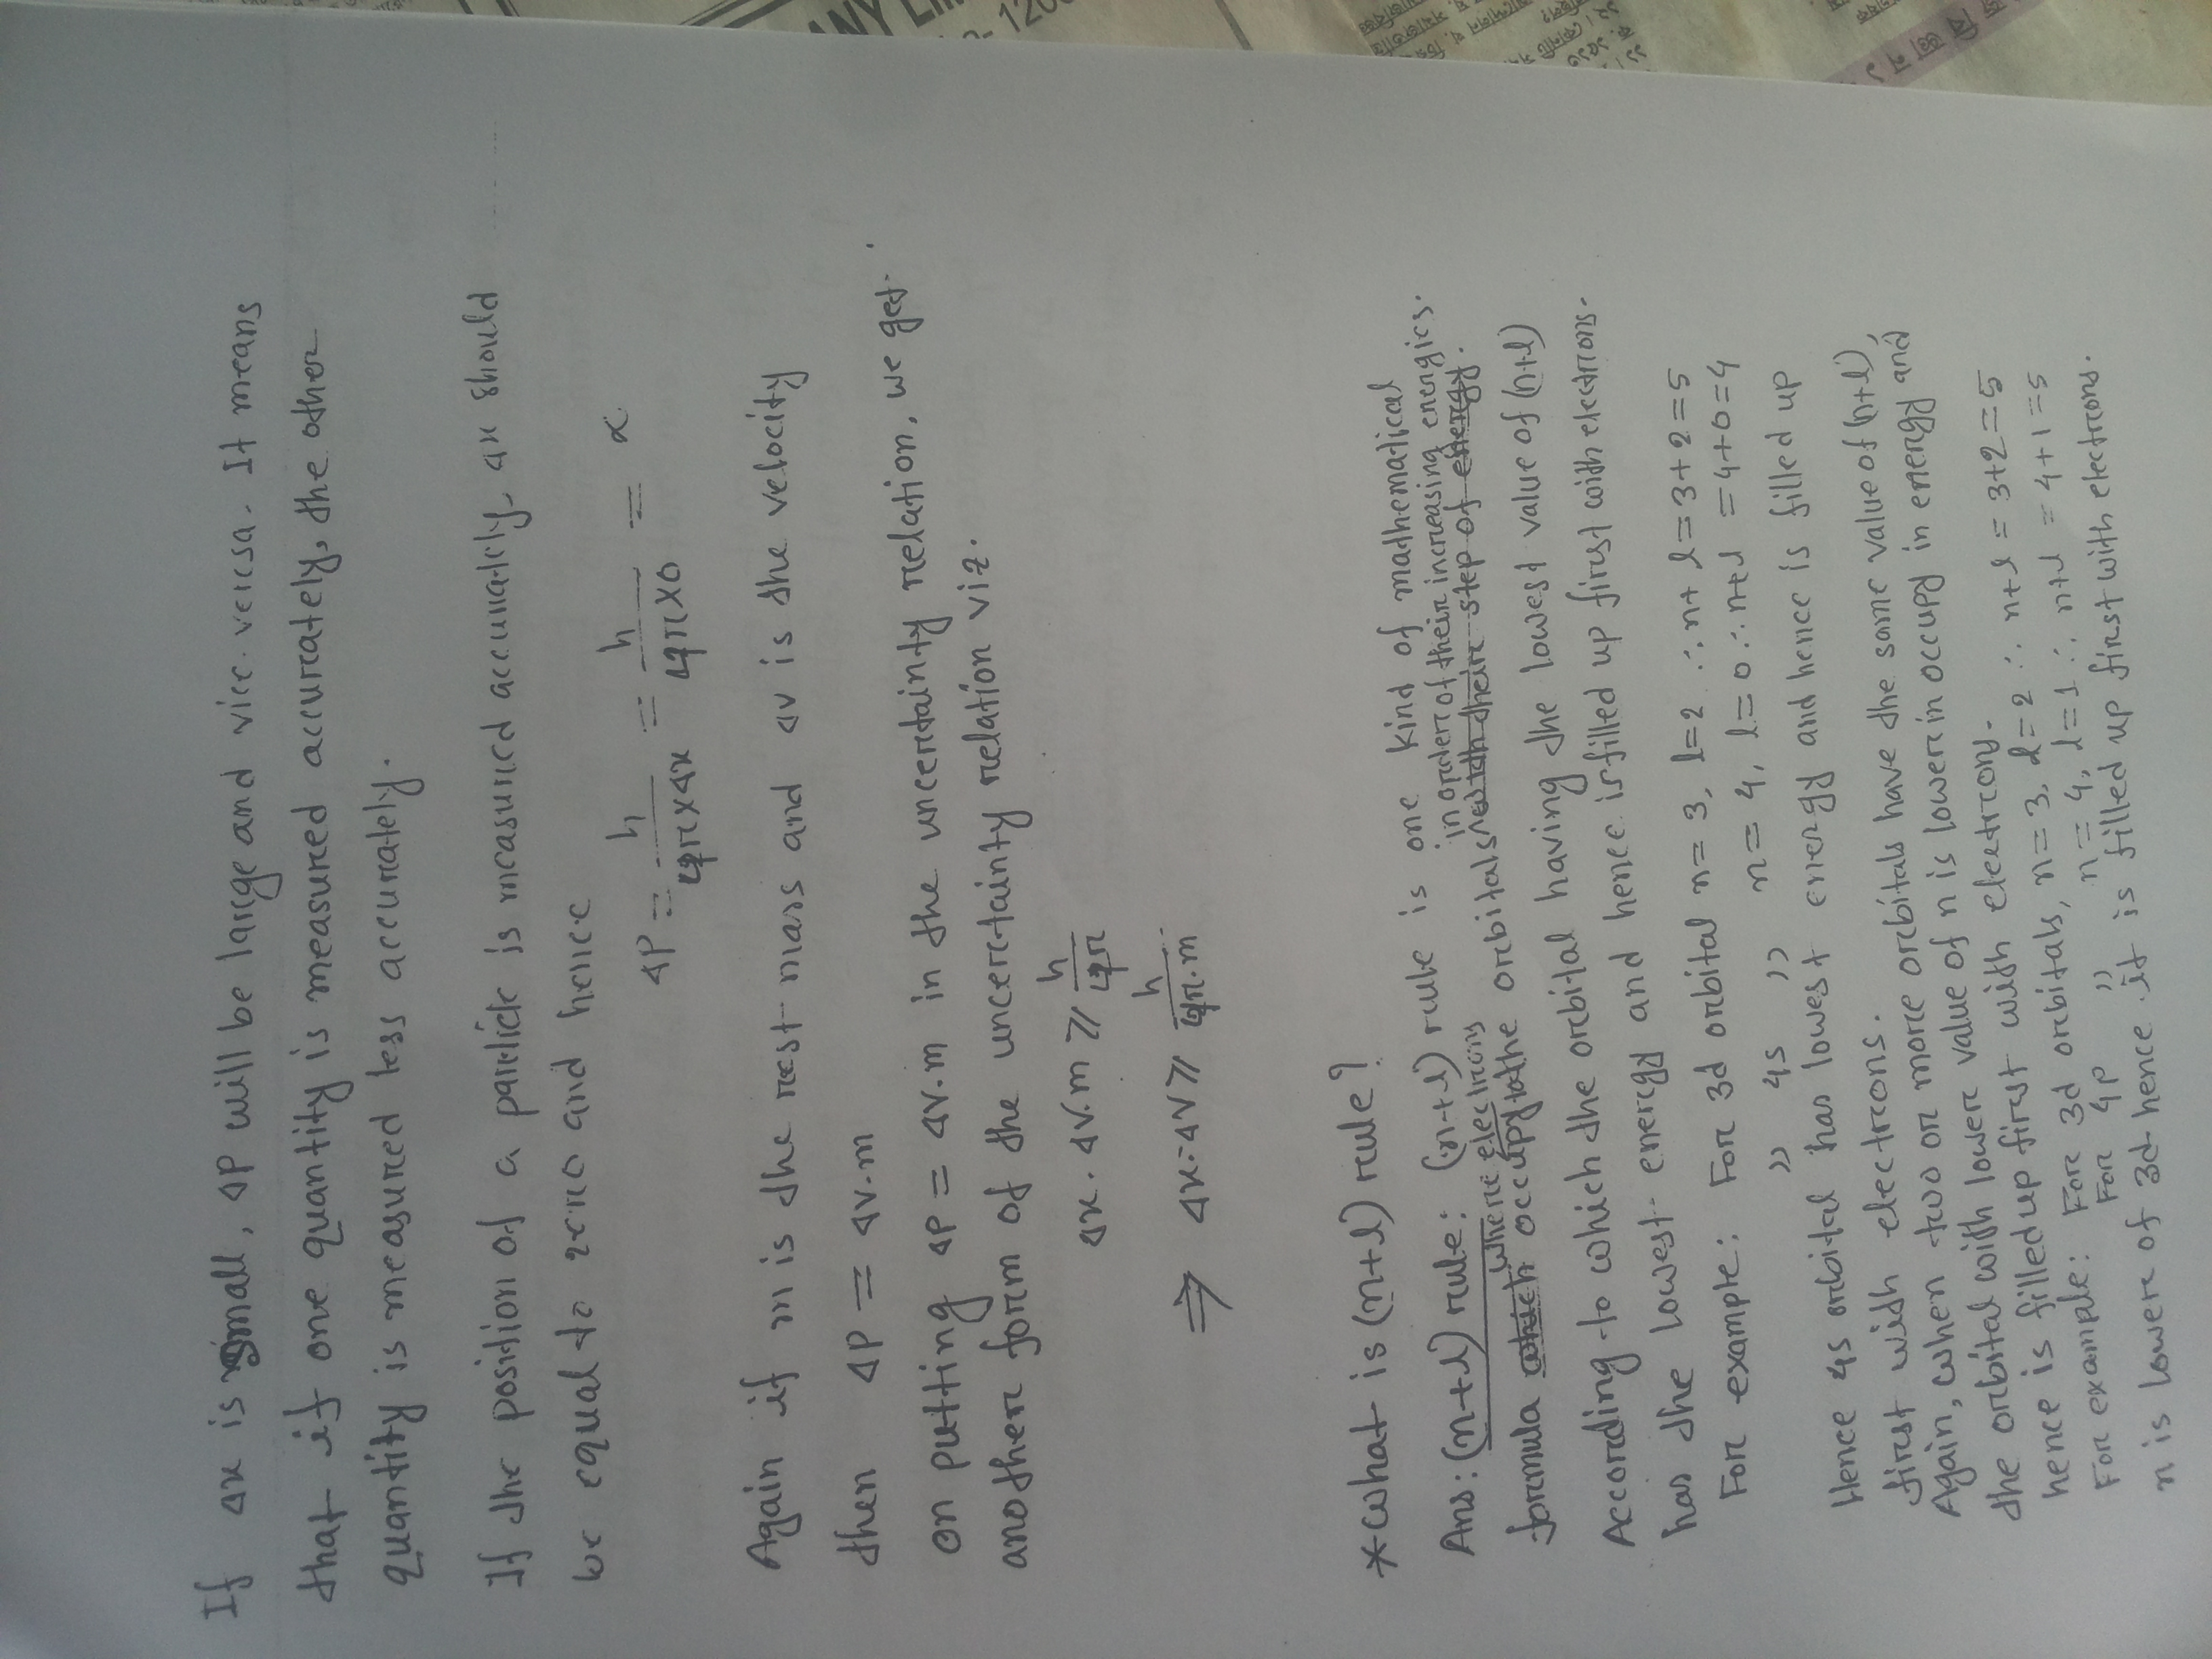 If Δx is small, Δp will be large and vice versa. It means
that if one quantity is measured accurately, the other
quantity is measured less accurately.
If the position of a particle is measured accurately, Δx should
be equal to zero and hence
Δp = h/4π×Δx = h/4π×0 = α
Again if m is the rest mass and Δv is the velocity
then Δp = Δv.m
on putting Δp = Δv.m in the uncertainty relation, we get
another form of the uncertainty relation viz.
Δx . Δv.m ≥ h/4π
⇒ Δx.Δv ≥ h/4π.m
*What is (n+l) rule?
Ans: (n+l) rule: (n+l) rule is one kind of mathematical
where electrons in order of their increasing energies.
formula which occupy to the orbitals with their step of energy.
According to which the orbital having the lowest value of (n+l)
has the lowest energy and hence is filled up first with electrons.
For example: For 3d orbital n = 3, l=2 ∴ n+l=3+2=5
,, 4s ,, n = 4, l=0 ∴ n+l =4+0=4
Hence 4s orbital has lowest energy and hence is filled up
first with electrons.
Again, when two or more orbitals have the same value of (n+l),
the orbital with lower value of n is lower in occupy in energy and
hence is filled up first with electrons.
For example: For 3d orbitals, n=3, l=2 ∴ n+l = 3+2=5
For 4p ,, n = 4, l=1 ∴ n+l = 4+1=5
n is lower of 3d hence it is filled up first with electrons.